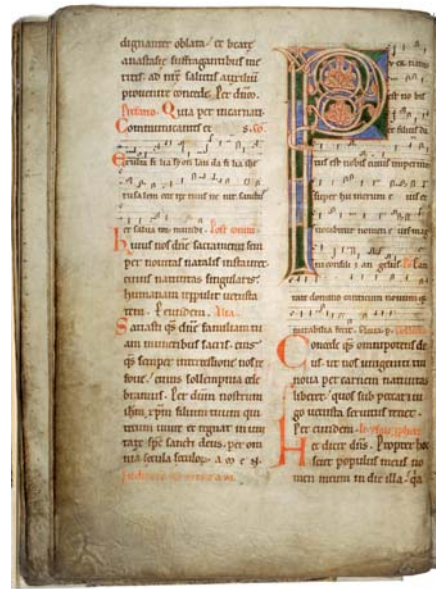 dignanter oblata / et beatę
anastasię suffragantibus me
ritis. ad nrę salutis auxiliū
provenire concede. Per dnm.
Prefatio. Quia per incarnati
Communicantes et
Exulta filia syon lauda filia ihe
rusalem ecce rex tuus ve nit sanctus
et salva tor mundi.
huius nos dne sacramenti sem
per novitas natalis instauret.
cuius nativitas singularis
humanam reppulit vetusta
tem. P eundem. Alia.
Sanasti qs dne familiam tu
am muneribus sacris. eius
qs semper interventione nos re
fove / cuius sollempnia cele
bramus. Per dnm nostrum
ihm xpm filium tuum qui
tecum vivit et regnat in uni
tate sps sancti deus. per om
nia secula seculor. a m e n.
Puer natus
est no bis
et filius da
tus est nobis cuius imperium
super humerum e ius et
vocabitur nomen e ius mag
ni consili i an gelus.
Concede qs omnipotens de
us. ut nos unigeniti tui
nova per carnem nativitas
liberet / quos sub peccati iu
go vetusta servitus tenet.
Per eundem.
Hec dicit dns. Propter hoc
sciet populus meus no
men meum in die illa. qa